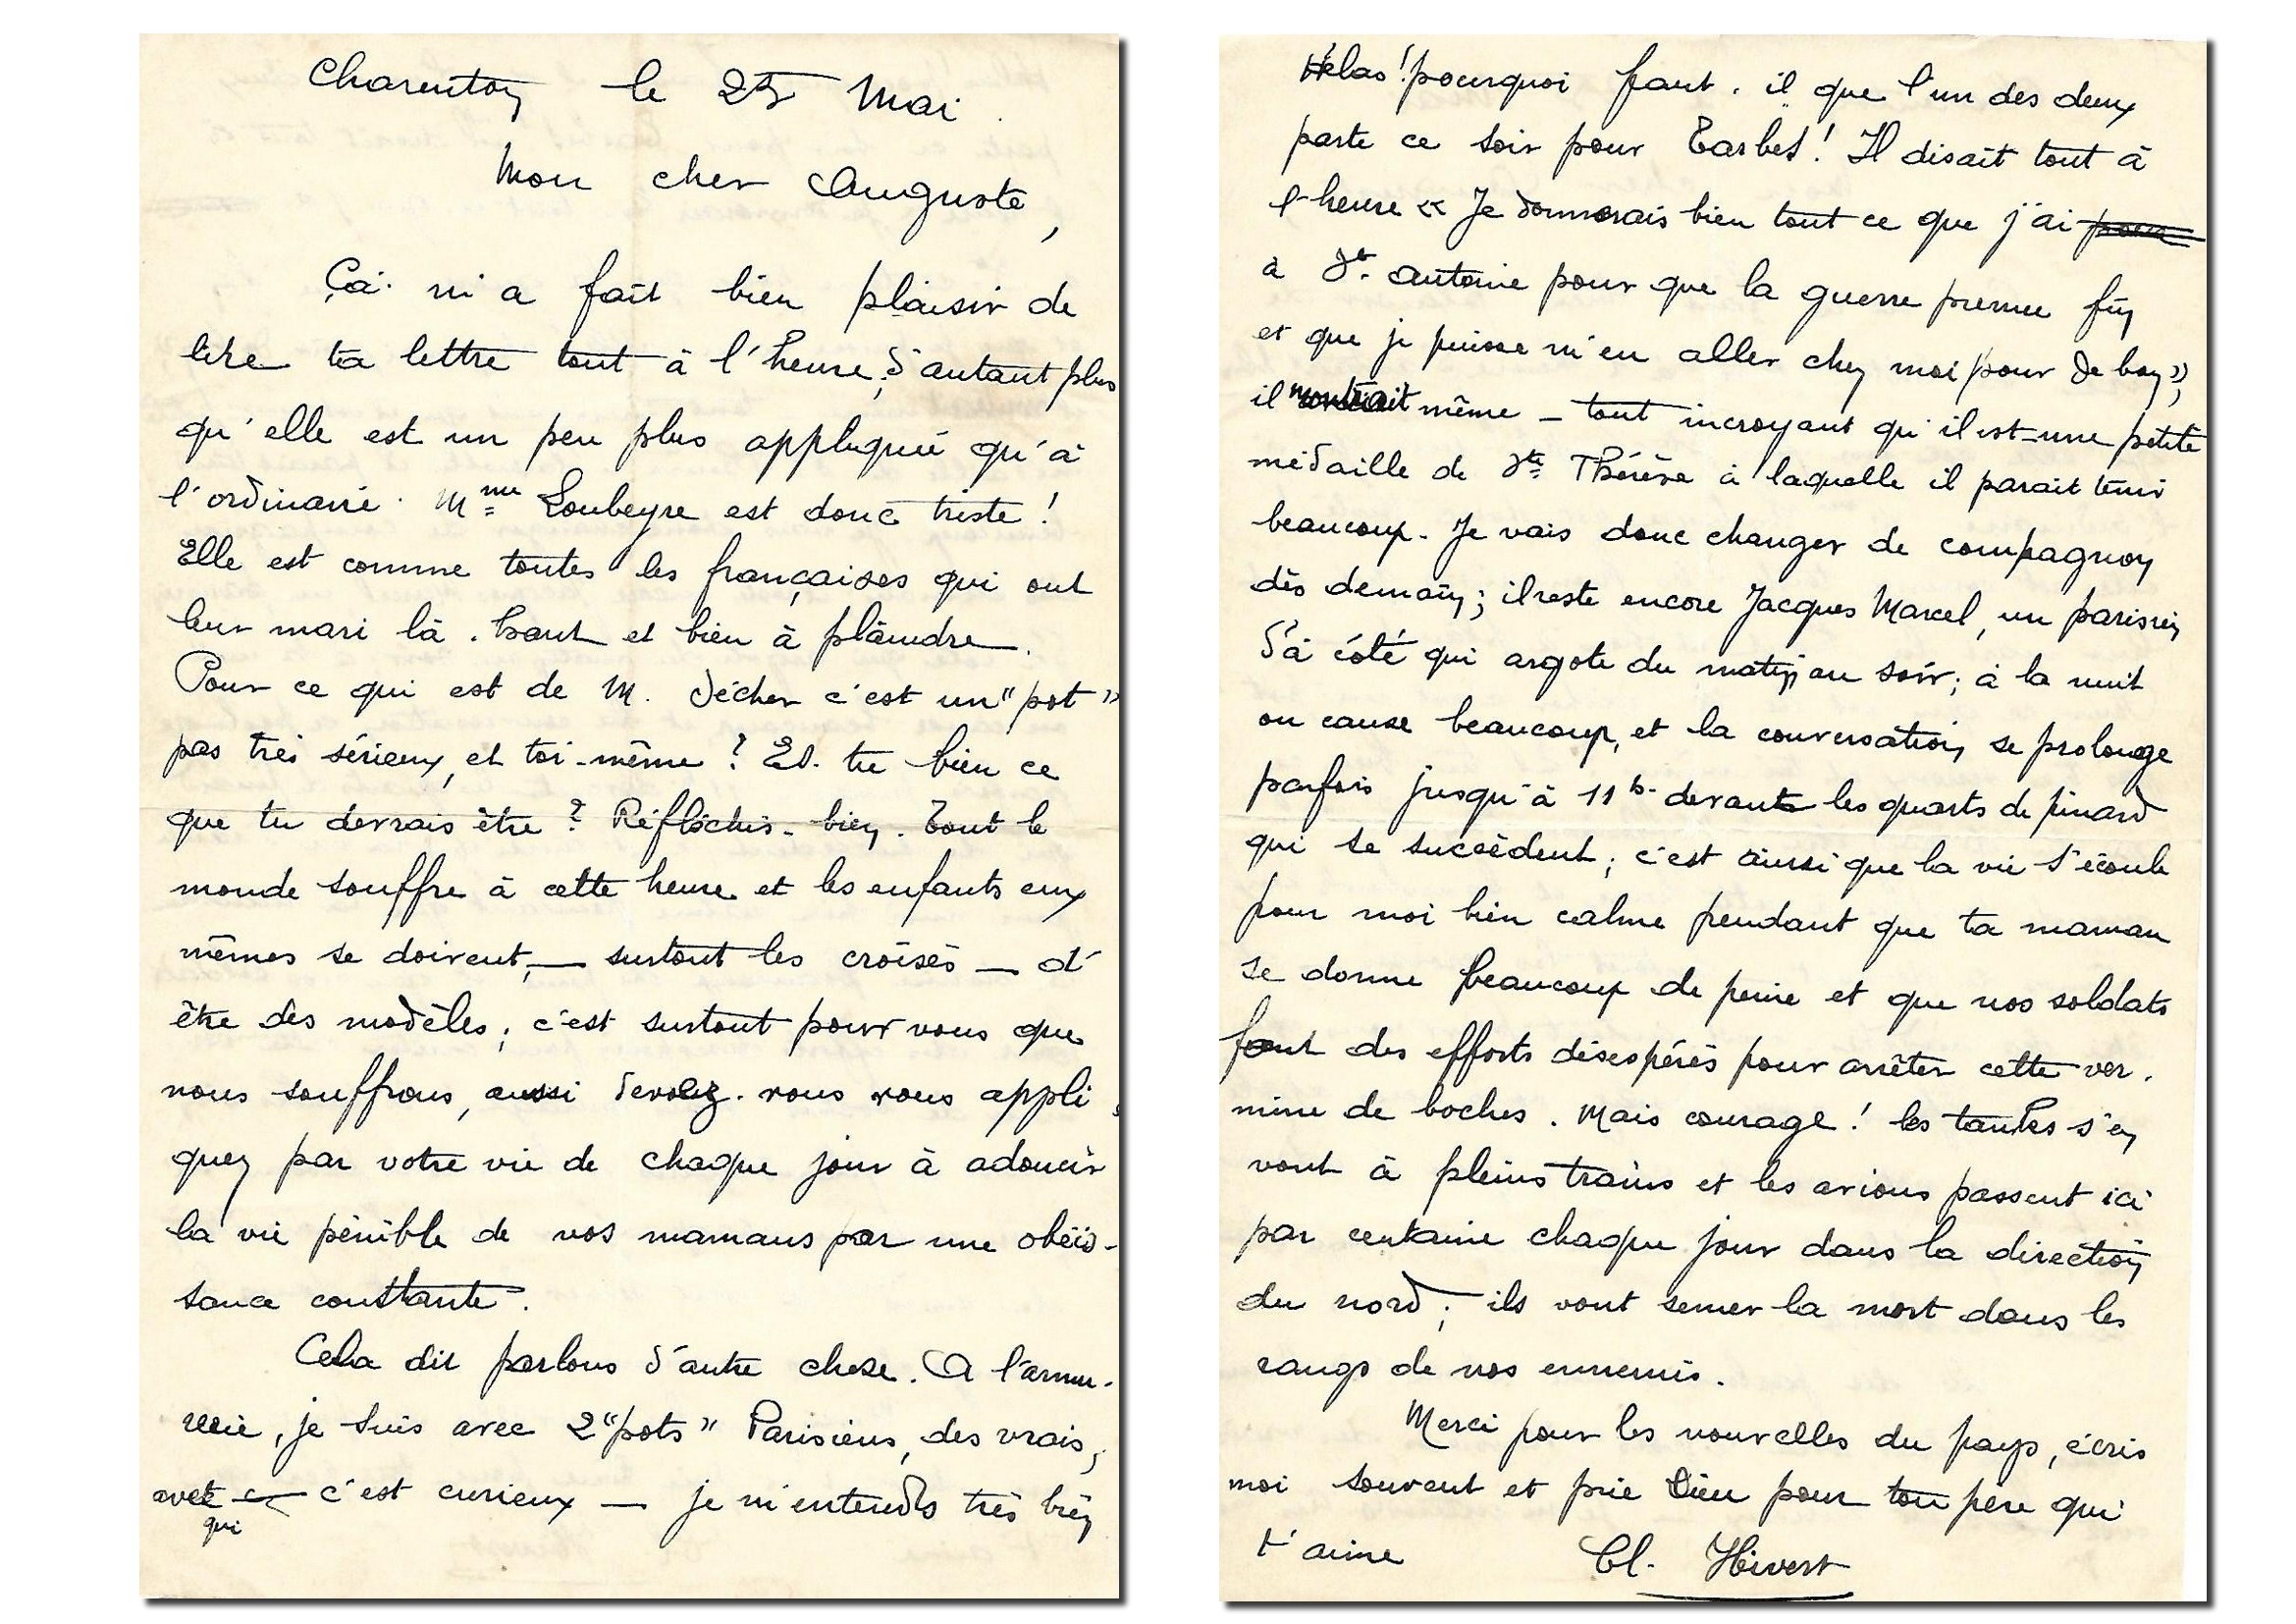 Charenton le 25 Mai.
Mon cher Auguste,
Ça m'a fait bien plaisir de
lire ta lettre tout à l'heure, d'autant plus
qu'elle est un peu plus appliquée qu'à
l'ordinaire. Mme Loubeyre est donc triste !
Elle est comme toutes les françaises qui ont
leur mari là-haut et bien à plaindre.
Pour ce qui est de M. Décher c'est un "pot"
pas très sérieux, et toi-même ? Es-tu bien ce
que tu devrais être ? Réfléchis-bien. Tout le
monde souffre à cette heure et les enfants eux
mêmes se doivent, — surtout les croisés — d'
être des modèles ; c'est surtout pour vous que
nous souffrons, aussi devez-vous vous appli
quez par votre vie de chaque jour à adoucir
la vie pénible de vos mamans par une obéis-
sance constante.
Cela dit parlons d'autre chose. A l'armu-
rerie, je suis avec 2 "pots" Parisiens, des vrais,
avec qui — c'est curieux — je m'entends très bien
Hélas ! pourquoi faut-il que l'un des deux
parte ce soir pour Tarbes ! Il disait tout à
l'heure « Je donnerais bien tout ce que j'ai pour
à St. Antoine pour que la guerre prenne fin
et que je puisse m'en aller chez moi pour de bon »,
il montrait même — tout incroyant qu'il est — une petite
médaille de Ste Thérèse à laquelle il parait tenir
beaucoup. Je vais donc changer de compagnon
dès demain ; il reste encore Jacques Marcel, un parisien
d'à côté qui argote du matin au soir ; à la nuit
on cause beaucoup, et la conversation se prolonge
parfois jusqu'à 11 h. devant les quarts de pinard
qui se succèdent ; c'est ainsi que la vie s'écoule
pour moi bien calme pendant que ta maman
se donne beaucoup de peine et que nos soldats
font des efforts désespérés pour arrêter cette ver-
mine de boches. Mais courage ! les tanks s'en
vont à pleins trains et les avions passent ici
par centaine chaque jour dans la direction
du nord ; ils vont semer la mort dans les
rangs de nos ennemis.
Merci pour les nouvelles du pays, écris
moi souvent et prie Dieu pour ton père qui
t'aime Cl. Hivert